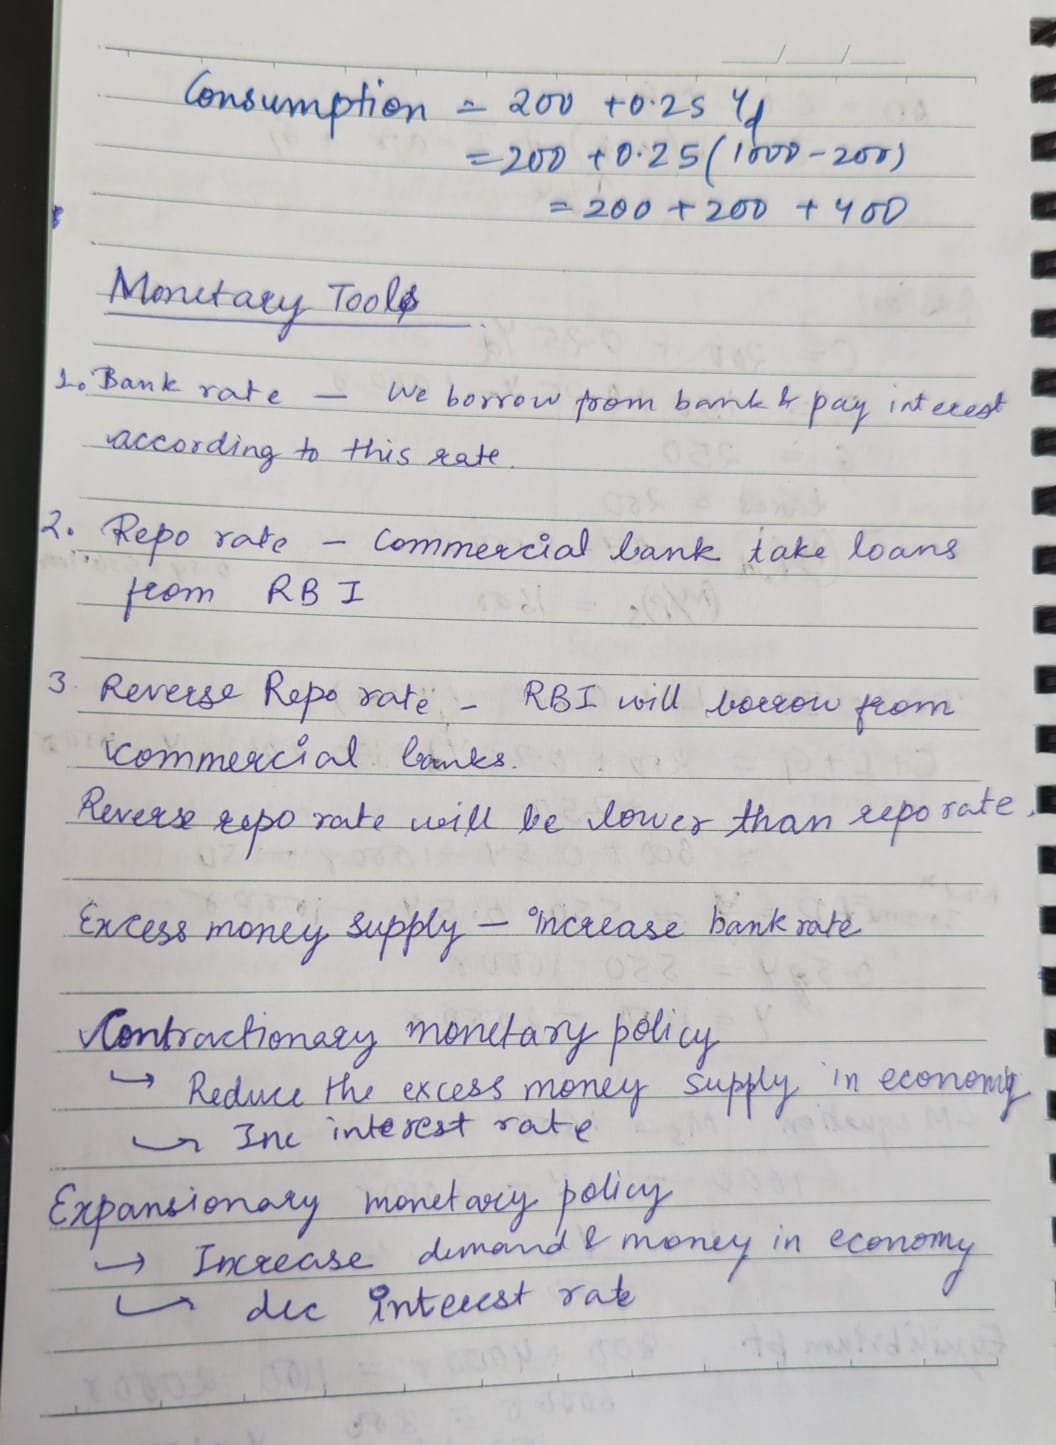 Consumption = 200 + 0.25 Yd
= 200 + 0.25 (1000 - 200)
= 200 + 200 + 400
Monetary Tools
1. Bank rate — We borrow from bank & pay interest
according to this rate.
2. Repo rate - Commercial bank take loans
from RBI
3. Reverse Repo rate - RBI will borrow from
commercial banks.
Reverse repo rate will be lower than repo rate.
Excess money supply — increase bank rate
Contractionary monetary policy
↳ Reduce the excess money supply in economy
↳ Inc interest rate
Expansionary monetary policy
→ Increase demand & money in economy
↳ dec interest rate